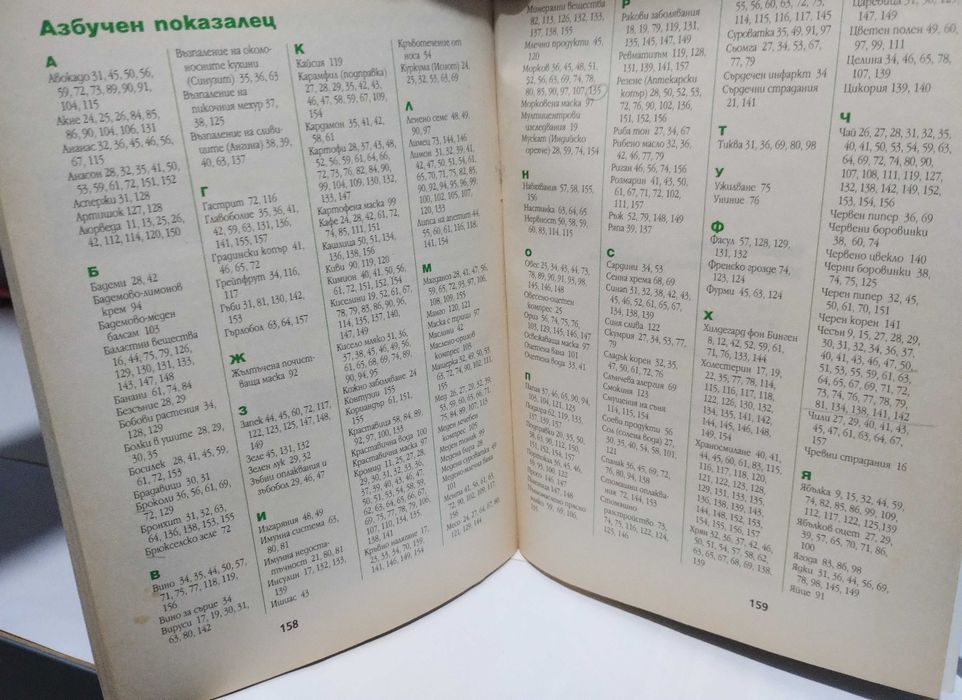 Азбучен показалец
А
Авокадо 31, 45, 50, 56,
59, 72, 73, 89, 90, 91,
104, 115
Акне 24, 25, 26, 84, 85,
86, 90, 104, 106, 131
Ананас 32, 36, 45, 46, 56,
67, 115
Анасон 28, 32, 35, 41, 50,
53, 59, 61, 72, 151, 152
Аспержи 31, 128
Артишок 127, 128
Аюрведа 11, 13, 25, 26,
42, 112, 114, 120, 150
Б
Бадеми 28, 42
Бадемово-лимонов
крем 94
Бадемово-меден
балсам 103
Баластни вещества
16, 44, 75, 79, 126,
129, 130, 131, 133,
143, 147, 148
Банани 61, 74, 84
Безсъние 28, 29
Бобови растения 34,
128, 129
Болки в ушите 28, 29,
30, 35
Босилек 28, 41, 45, 59,
61, 72, 153
Брадавици 30, 31
Броколи 36, 56, 61, 69,
72, 129
Бронхит 31, 32, 63,
64, 136, 138, 153, 155
Брюкселско зеле 72
В
Вино 34, 35, 44, 50, 57,
71, 75, 77, 118, 119,
156
Вино за сърце 34
Вируси 17, 19, 30, 31,
63, 80, 142
Възпаление на около-
носните кухини
(Синузит) 35, 36, 63
Възпаление на
пикочния мехур 37,
38, 125
Възпаление на сливи-
ците (Ангина) 38, 39,
40, 63, 137
Г
Гастрит 72, 116
Главоболие 35, 36, 41,
42, 59, 63, 131, 136,
141, 155, 157
Градински копър 41,
46, 65, 72
Грейпфрут 34, 116,
117
Гъби 31, 81, 130, 142,
153
Гърлобол 63, 64, 157
Ж
Жълтъчена почист-
ваща маска 92
З
Запек 44, 45, 60, 72, 117,
122, 123, 125, 147, 148,
149
Зеле 45, 131, 132
Зелен лук 29, 32
Зъбни оплаквания и
зъбобол 29, 46, 47
И
Изгаряния 48, 49
Имунна система 63,
80, 81
Имунна недоста-
тъчност 21, 80, 81
Инсулин 17, 132, 133,
139
Ишиас 43
К
Кайсия 119
Карамфил (подправка)
27, 28, 29, 35, 42, 43,
46, 47, 58, 59, 67, 109,
154
Кардамон 35, 41, 42,
58, 61
Картофи 28, 37, 43, 48,
52, 56, 59, 61, 64, 66,
72, 73, 76, 82, 84, 90,
99, 104, 109, 130, 132,
133, 147
Картофена маска 99
Кафе 24, 28, 42, 61, 72,
74, 85, 111, 151
Кашлица 50, 51, 134,
136, 138, 156
Киви 90, 119, 120
Кимион 40, 41, 50, 56,
61, 72, 151, 152, 154
Киселини 19, 52, 61, 67,
78, 79, 83, 86, 90, 96,
114, 135, 137, 140,
147, 149
Кисело мляко 31, 36,
37, 38, 45, 46, 49, 56,
61, 65, 68, 69, 74, 89,
90, 94, 95
Кожно заболяване 24
Контузии 155
Кориандър 61, 151,
154
Краставица 58, 84, 89,
92, 97, 100, 133
Краставична вода 100
Краставична маска 97
Кромид 11, 25, 27, 28,
29, 30, 31, 32, 33, 36,
37, 39, 40, 43, 46, 47,
50, 51, 53, 54, 58, 59,
62, 63, 64, 65, 66, 67,
69, 75, 77, 78, 79, 96,
107, 110, 134, 135,
138, 141
Кръвно налягане 17,
23, 33, 34, 70, 139,
141, 146, 149, 154
Кръвотечение от
носа 54
Куркума (Иолот) 24,
25, 32, 53, 63, 69
Л
Ленено семе 48, 49,
90, 97
Лимец 73, 144, 146
Лимон 31, 32, 39, 41,
42, 47, 50, 51, 54, 61,
65, 70, 71, 75, 82, 85,
90, 92, 94, 95, 96, 99,
100, 102, 105, 107,
120, 133
Липса на апетит 44,
55, 60, 61, 116, 118,
141, 154
М
Магданоз 28, 41, 47, 56,
59, 65, 72, 93, 97, 106,
108, 109, 155
Манго 120, 121
Маска с трици 97
Маслини 42
Маслено-оризов
компрес 105
Мащерка 32, 49, 50, 53,
63, 72, 74, 90, 102, 111,
155
Мед 26, 27, 29, 32, 39,
53, 59, 60, 63, 66, 71,
75, 84, 89, 107, 113
Меден лечебен
компрес 105
Медена бира 28
Медена суроватка 49
Медено-млечна баня
101
Мента 41, 50, 61, 63,
72, 90, 102, 109, 117,
150
Месо 24, 27, 64, 67, 80,
121, 128, 144
158
Минерални вещества
82, 113, 126, 132, 133,
137, 138, 155
Млечни продукти 45,
120
Морков 36, 45, 48, 51,
52, 56, 63, 69, 74, 78,
80, 85, 90, 97, 107, 135
Морковена маска 97
Мултицентрови
изследвания 19
Мускат (Индийско
орехче) 28, 59, 74, 154
Н
Набивания 57, 58, 155,
156
Настинка 63, 64, 65
Нервност 50, 58, 59,
60, 83, 114, 115
О
Овес 25, 34, 43, 44, 73,
78, 89, 90, 91, 93, 98,
145, 146, 148
Овесено-оцетен
компрес 25
Орех 56, 74, 75, 76,
103, 129, 145, 146, 147
Освежаваща маска 97
Оцетена баня 101
Оцетена вода 33, 41
П
Папая 37, 46, 65, 90, 94,
103, 104, 121, 123
Подагра 62, 119, 133,
137, 147, 151
Подправки 20, 35, 50,
58, 63, 95, 131, 132, 150,
151, 152, 154, 156
Портокал 36, 45, 46,
89, 93, 100, 122
Праз 66, 136
Пшеница 147, 148
Р
Ракови заболявания
18, 19, 79, 119, 131,
135, 145, 147, 149
Ревматизъм 119, 128,
131, 139, 141, 157
Резене (Аптекарски
копър) 28, 50, 52, 53,
72, 76, 90, 102, 136,
151, 152, 156
Риба тон 27, 34, 67
Рибено масло 32, 36,
42, 46, 77, 79
Риган 46, 56, 74, 156
Розмарин 41, 43, 50,
61, 67, 71, 72, 102,
111, 157
Ръж 52, 79, 148, 149
Ряпа 39, 137
С
Сардини 34, 53
Сенна хрема 68, 69
Синап 31, 32, 38, 42, 43,
45, 46, 52, 61, 65, 67,
134, 138, 139
Синя слива 122
Скумрия 27, 34, 53, 77,
79
Сладък корен 32, 35,
47, 50, 61, 72, 76
Слънчева алергия 69
Смокиня 123
Смущения на съня
114, 115, 154
Соеви продукти 56
Сол (солена вода) 27,
30, 35, 40, 54, 58, 101,
121
Спанак 36, 45, 69, 72,
76, 80, 94, 138
Стомашни оплаква-
ния 72, 144, 153
Стомашно
разстройство 73,
74, 75, 116, 122, 124,
125, 146
55, 56, 60, 63, 72, 75,
114, 115, 116, 117, 145
Суроватка 35, 49, 91, 97
Сьомга 27, 34, 53, 67,
77, 79
Сърдечен инфаркт 34
Сърдечни страдания
21, 141
Т
Тиква 31, 36, 69, 80, 98
У
Ужилване 75
Униние 76
Ф
Фасул 57, 128, 129,
131, 132
Френско грозде 74,
123, 124
Фурми 45, 63, 124
Х
Хилдегард фон Бинген
8, 12, 42, 52, 59, 61,
71, 76, 133, 144
Холестерин 17, 19,
22, 35, 77, 78, 114,
115, 116, 117, 118,
122, 126, 130, 132,
134, 135, 141, 142,
144, 145, 146, 148,
149, 154
Храносмилане 40, 41,
44, 45, 60, 61, 83, 115,
116, 117, 118, 120,
121, 122, 123, 128,
129, 131, 133, 135,
136, 138, 139, 143,
144, 148, 152, 153,
154, 155, 156, 157
Хрян 32, 36, 37, 42, 46,
50, 51, 54, 57, 58, 62,
63, 65, 67, 68, 69, 138,
139
147, 149
Цветен полен 49, 60,
97, 99, 111
Целина 34, 46, 65, 78,
107, 139
Цикория 139, 140
Ч
Чай 26, 27, 28, 31, 32, 35,
40, 41, 50, 53, 54, 59, 63,
64, 69, 72, 74, 80, 90,
107, 108, 111, 119, 127,
132, 138, 142, 149, 152,
153, 154, 156
Червен пипер 36, 69
Червени боровинки
38, 60, 74
Червено цвекло 140
Черни боровинки 38,
74, 75, 125
Черен пипер 32, 45,
50, 61, 70, 151
Черен корен 141
Чесън 9, 15, 27, 28, 29,
30, 31, 32, 34, 36, 37,
40, 41, 43, 46, 47, 50,
51, 53, 55, 59, 61, 63,
64, 65, 67, 69, 71, 72,
73, 74, 76, 77, 78, 79,
81, 134, 138, 141, 142
Чили 27, 29, 40, 41, 43,
45, 47, 61, 63, 64, 67,
157
Чревни страдания 16
Я
Ябълка 9, 15, 32, 44, 59,
74, 82, 85, 86, 99, 109,
112, 117, 122, 125,139
Ябълков оцет 27, 29,
39, 57, 65, 70, 71, 86,
100
Ягода 83, 86, 98
Ядки 31, 36, 44, 56, 69,
78, 98, 145, 149
Яйце 91
159